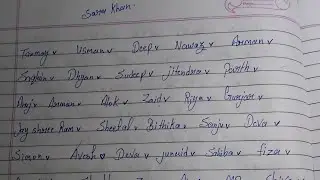 Sameer Khan
Tanmay ✓ Usman ✓ Deep ✓ Nawaz ✓ Arman ✓
Dhyan ✓ Sudeep ✓ jitendra ✓ Parth ✓
Anaj ✓ Anman ✓ Alok ✓ Zaid ✓ Riya ✓ Gurjar ✓
Jay shree Ram ✓ Shefal ✓ Bithika ✓ Sanju ✓ Deva ✓
Simran ✓ Avesh ✓ Deva ✓ junaid ✓ Sahiba ✓ fiza ✓